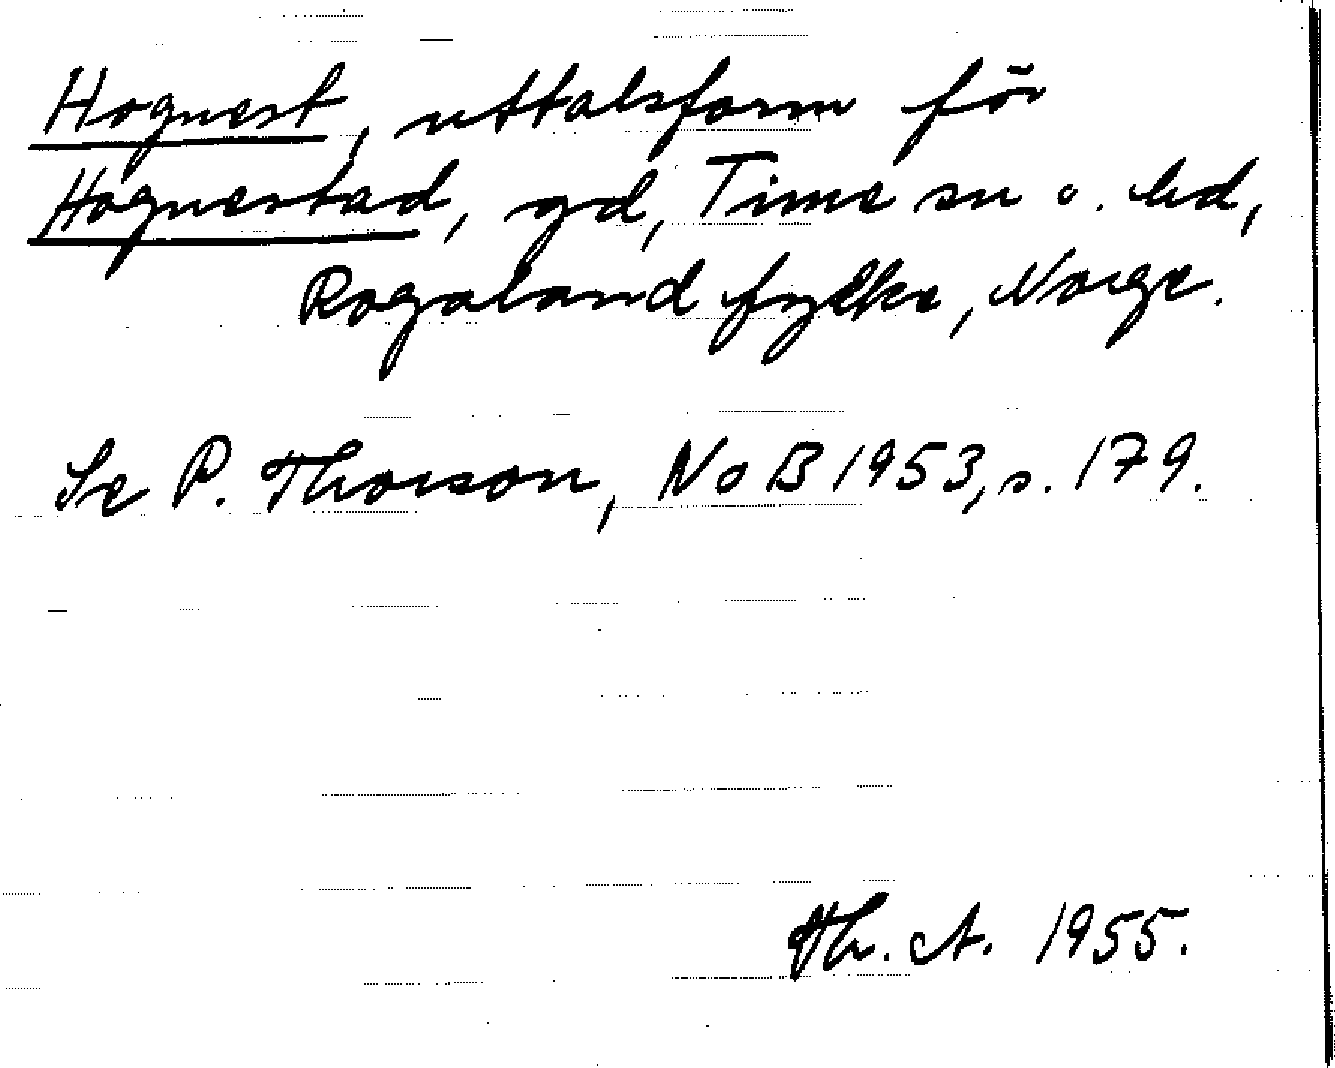 Hognest, uttalsform för
Hognestad, gd, Time sn o. hd,
Rogaland fylke, Norge.
Se P. Thorson, NoB 1953, s. 179.
Th. A. 1955.